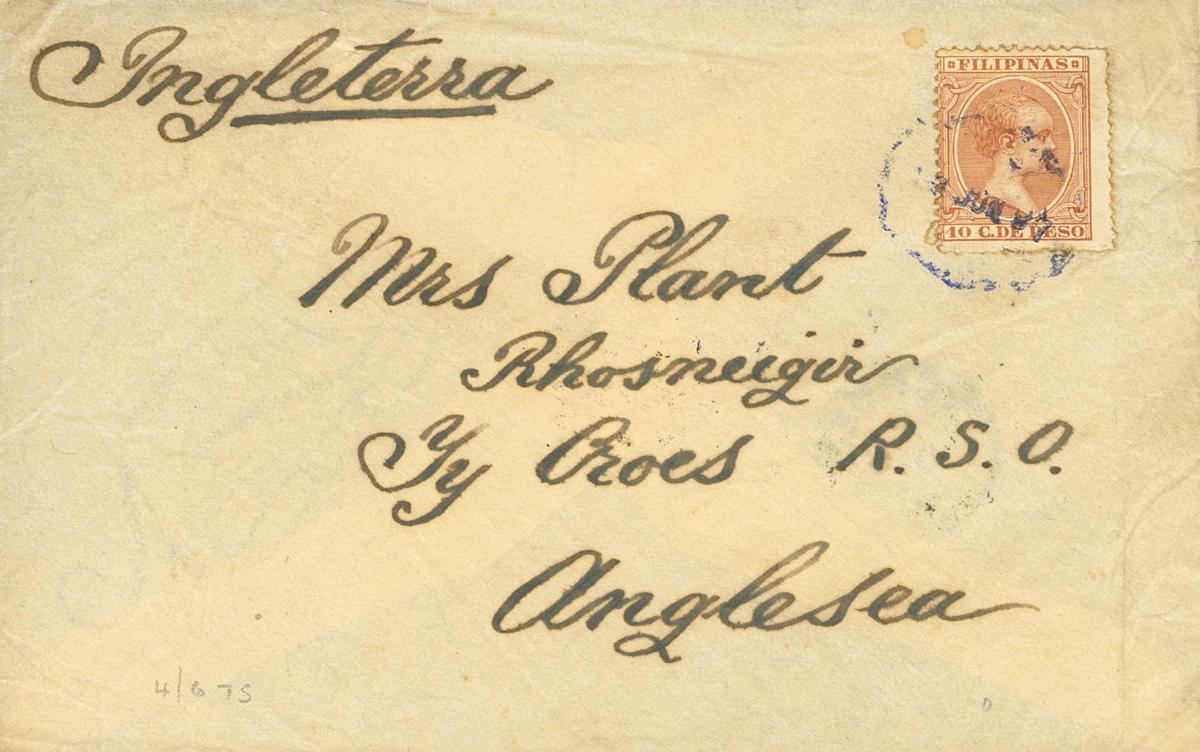 Ingleterra
FILIPINAS
10 C. DE PESO
Mrs Plant
Rhosneigir
Ty Croes R. S. O.
Anglesea